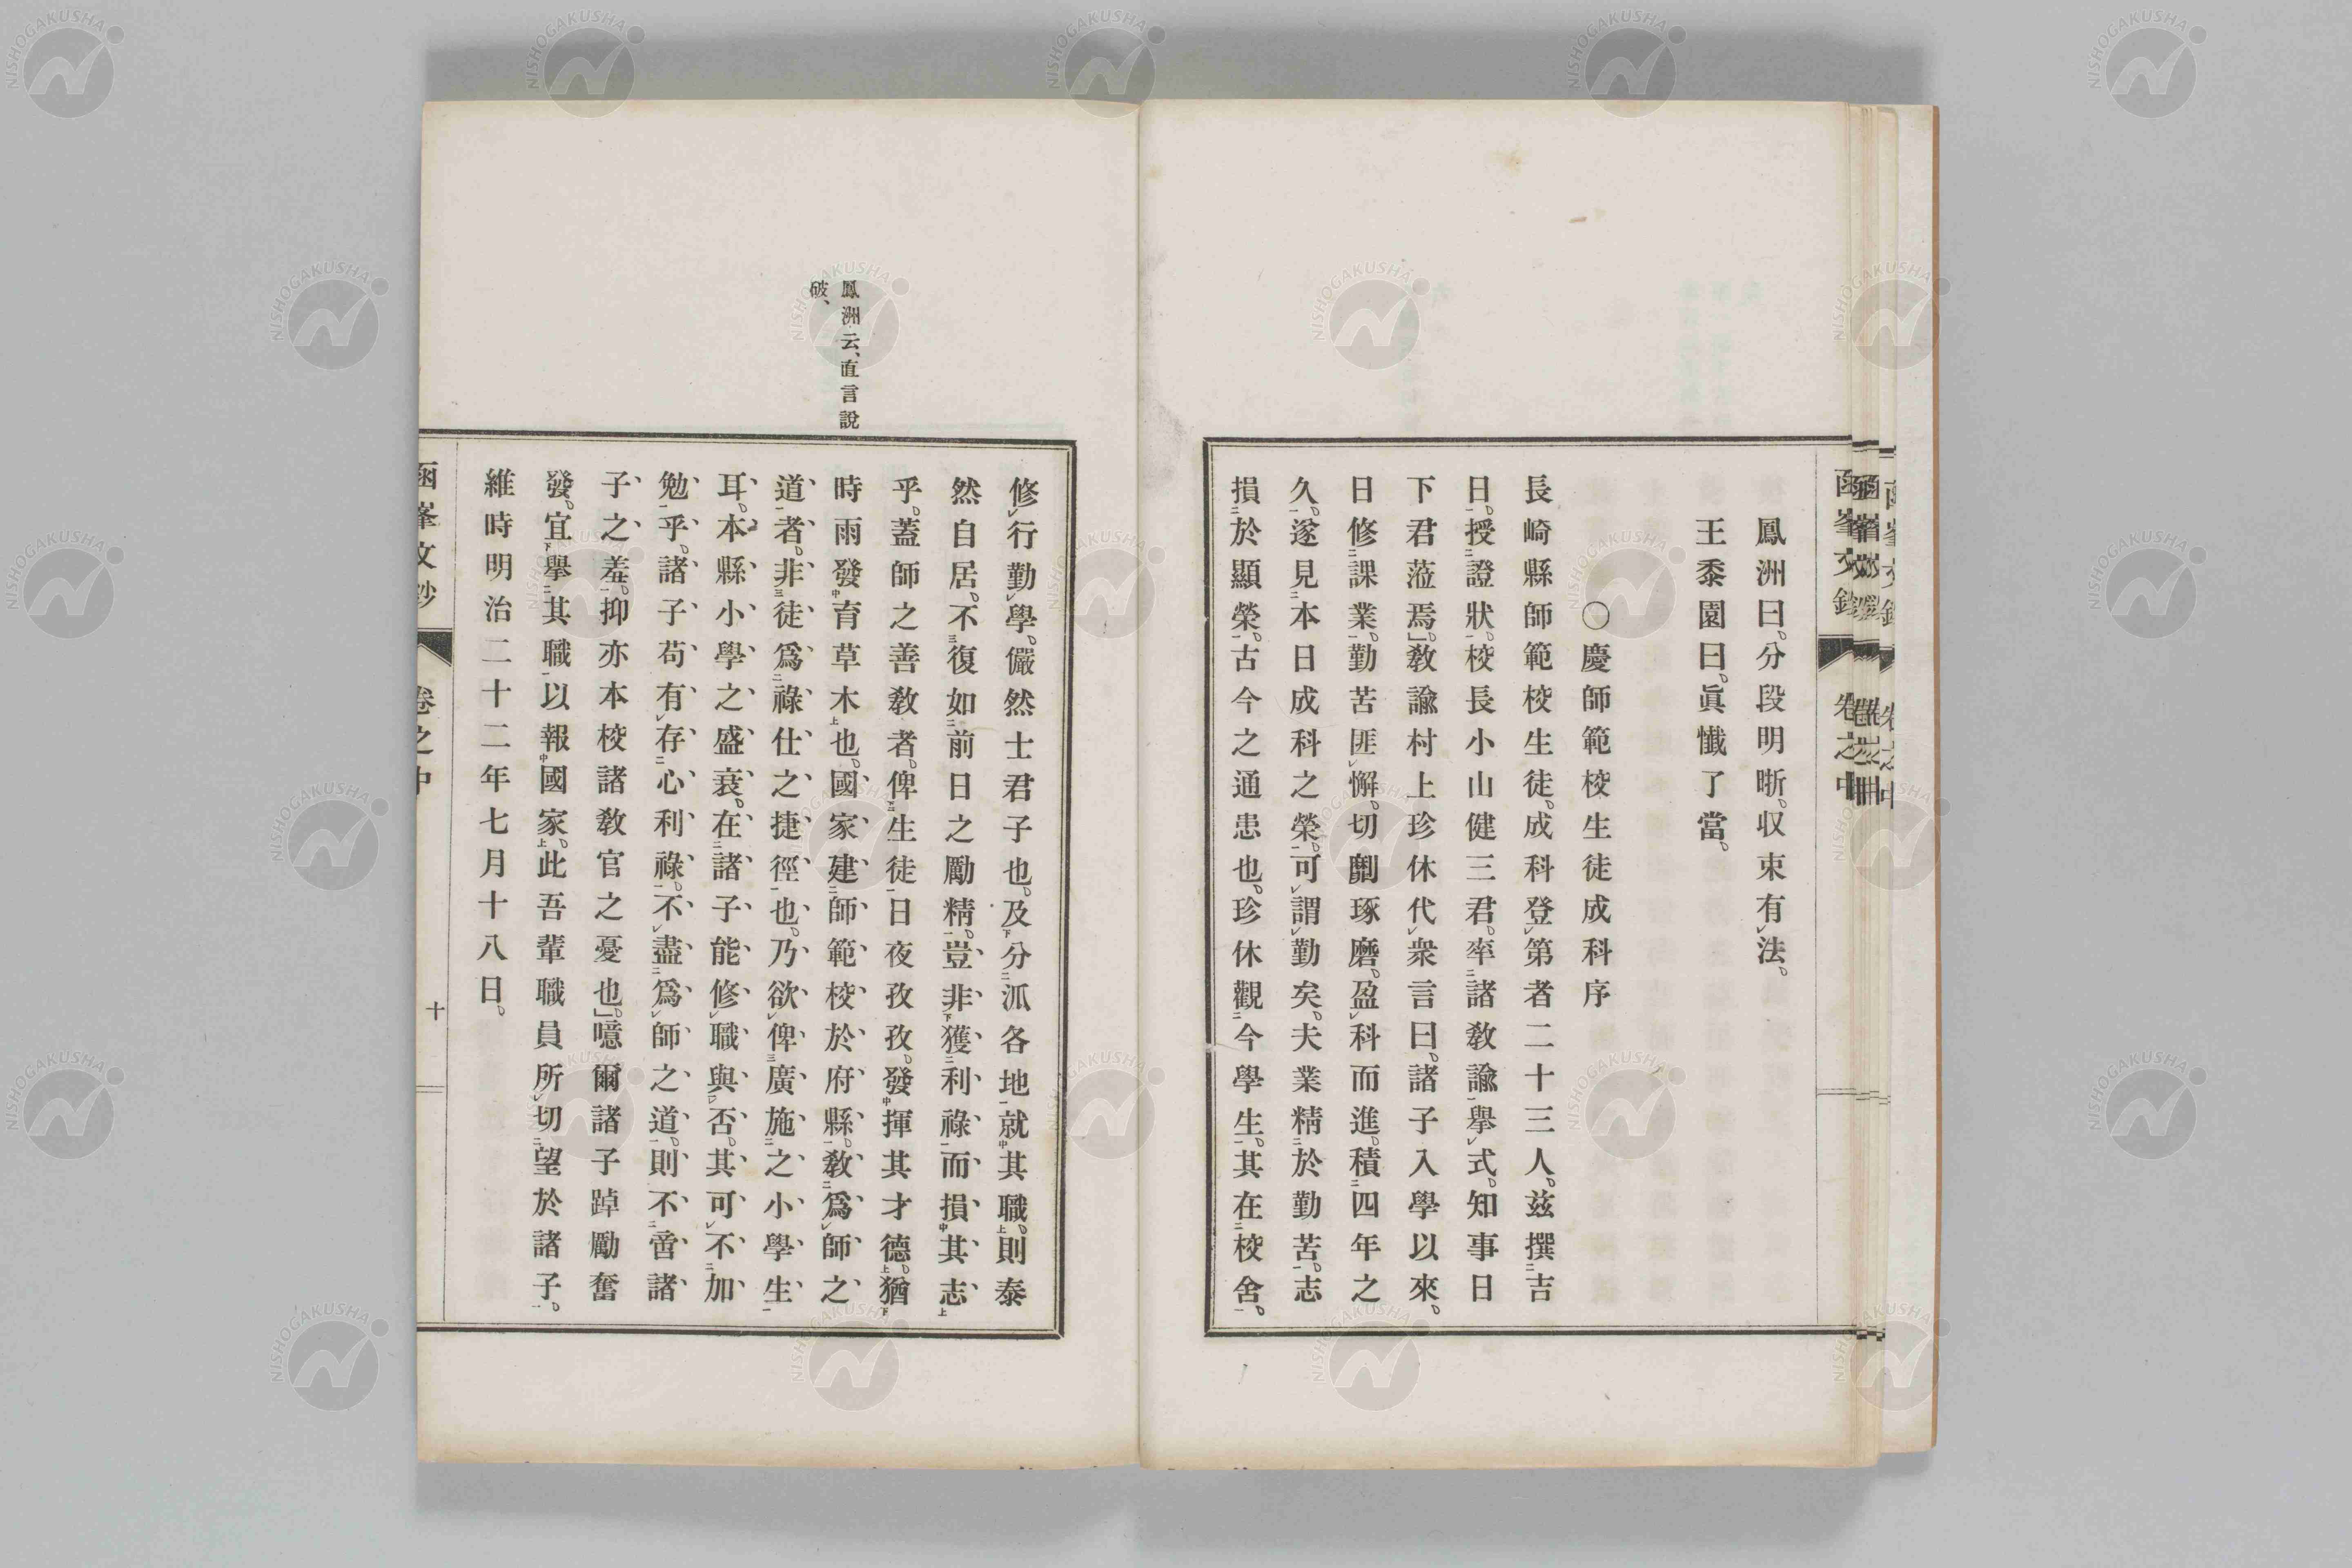 鳳洲曰。分段明晣。収束有法。
王黍園曰。眞懺了當。
〇慶師範校生徒成科序
長崎縣師範校生徒。成科登第者二十三人。茲撰吉
日。授證狀。校長小山健三君。率諸教諭擧式。知事日
下君蒞焉」。教諭村上珍休代衆言曰。諸子入學以來。
日修課業。勤苦匪懈。切劘琢磨。盈科而進。積四年之
久。遂見本日成科之榮。可謂勤矣。夫業精於勤苦。志
損於顯榮。古今之通患也。珍休觀今學生。其在校舍。
函峯文鈔
卷之中
鳳洲云、直言說
破、
修行勤學。儼然士君子也。及分派各地就其職。則泰
然自居。不復如前日之勵精。豈非獲利祿而損其志
乎。蓋師之善教者。俾生徒日夜孜孜。發揮其才德。猶
時雨發育草木也。國家建師範校於府縣。教爲師之
道者。非徒爲祿仕之捷徑也。乃欲俾廣施之小學生
耳。本縣小學之盛衰。在諸子能修職與否。其可不加
勉乎。諸子苟有存心利祿。不盡爲師之道。則不啻諸
子之羞。抑亦本校諸教官之憂也」。噫爾諸子踔勵奮
發。宜擧其職以報國家。此吾輩職員所切望於諸子。
維時明治二十二年七月十八日。
函峯文鈔
卷之中
十
NISHOGAKUSHA